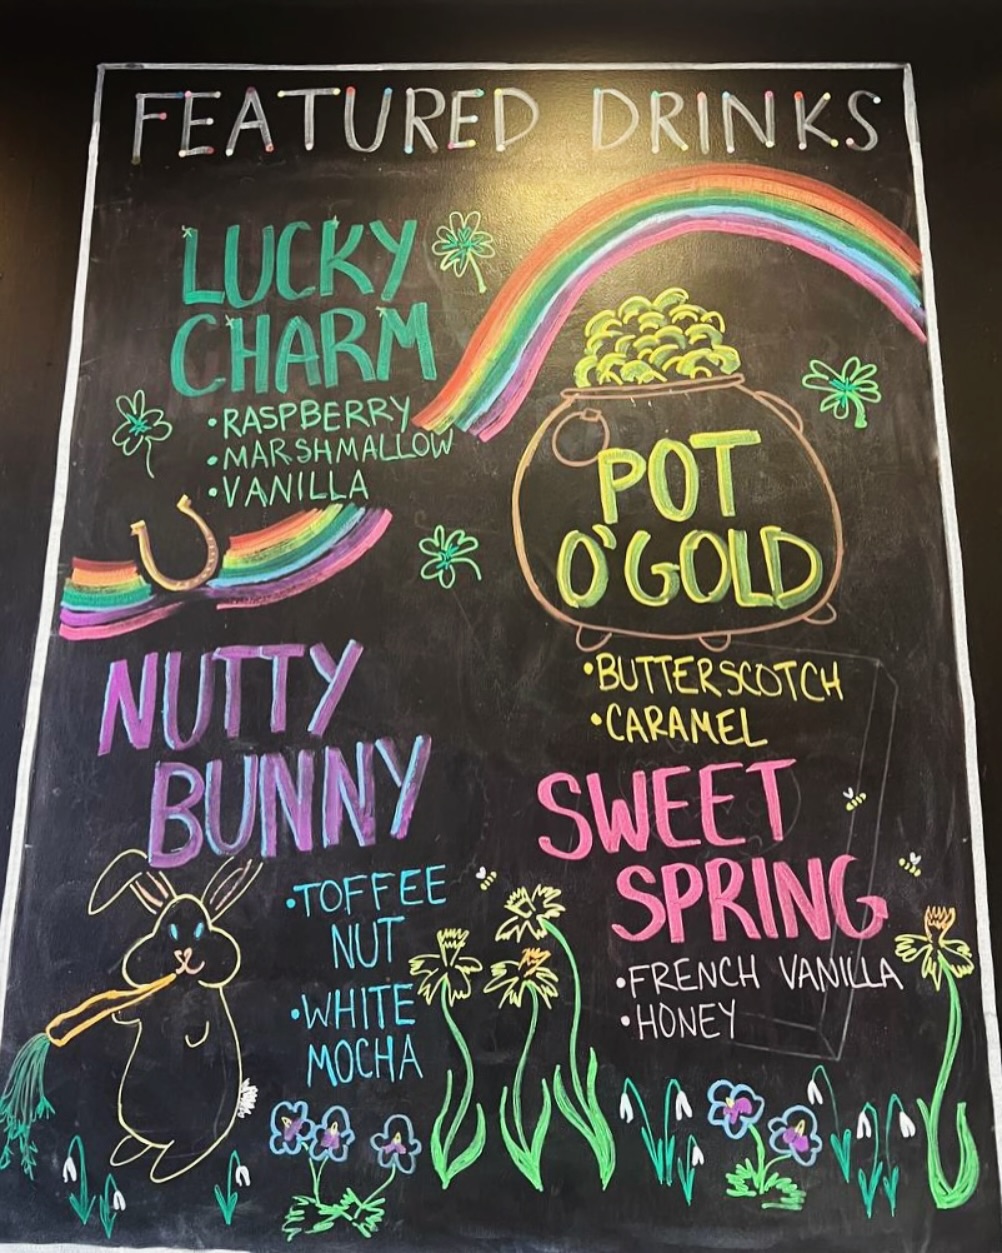 FEATURED DRINKS
LUCKY
CHARM
•RASPBERRY
•MARSHMALLOW
•VANILLA
POT
O'GOLD
•BUTTERSCOTCH
•CARAMEL
NUTTY
BUNNY
•TOFFEE
NUT
•WHITE
MOCHA
SWEET
SPRING
•FRENCH VANILLA
•HONEY